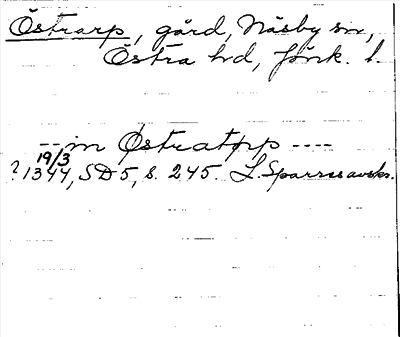 Östrarp, gård, Näsby sn,
Östra hd, Jönk. l.
-- in Østratorp ----
19/3
? 1344, SD 5, s. 245. L. Sparres avskr.